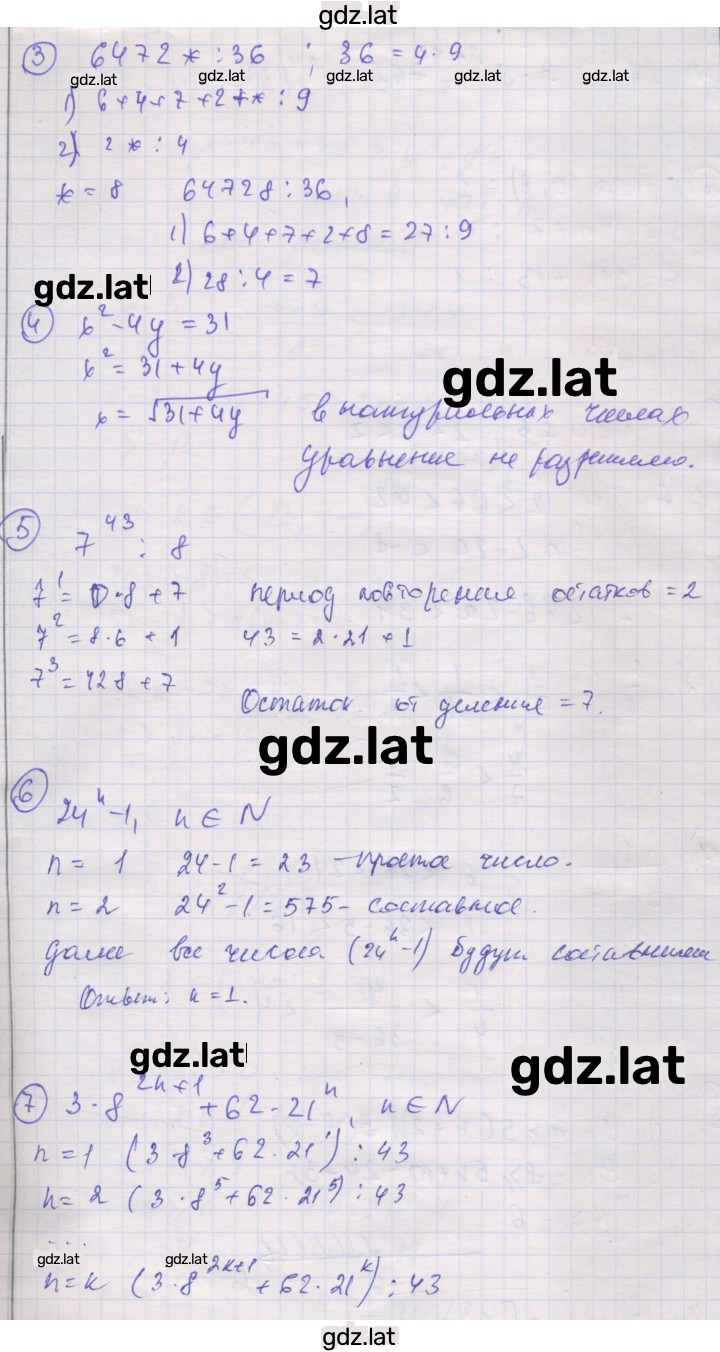 gdz.lat
③ 6472* ⋮ 36 ; 36 = 4·9
gdz.lat gdz.lat gdz.lat gdz.lat gdz.lat
1) 6+4+7+2+* ⋮ 9
2) 2* ⋮ 4
* = 8 64728 ⋮ 36,
1) 6+4+7+2+8 = 27 ⋮ 9
gdz.lat 2) 28 : 4 = 7
④ x² - 4y = 31
x² = 31 + 4y
gdz.lat
x = √31+4y в натуральных числах
уравнение не разрешимо.
⑤ 7⁴³ : 8
7¹ = 0·8 + 7 период повторения остатков = 2
7² = 8·6 + 1 43 = 2·21 + 1
7³ = 42·8 + 7
Остаток от деления = 7.
gdz.lat
⑥ 24ⁿ - 1, n ∈ N
n = 1 24 - 1 = 23 – простое число.
n = 2 24² - 1 = 575 - составное.
Далее все числа (24ⁿ - 1) будут составными
Ответ: n = 1.
gdz.lat gdz.lat
⑦ 3·8²ⁿ⁺¹ + 62·21ⁿ, n ∈ N
n = 1 (3·8³ + 62·21¹) ⋮ 43
n = 2 (3·8⁵ + 62·21⁵) ⋮ 43
...
gdz.lat gdz.lat
n = k (3·8²ᵏ⁺¹ + 62·21ᵏ) ⋮ 43
gdz.lat